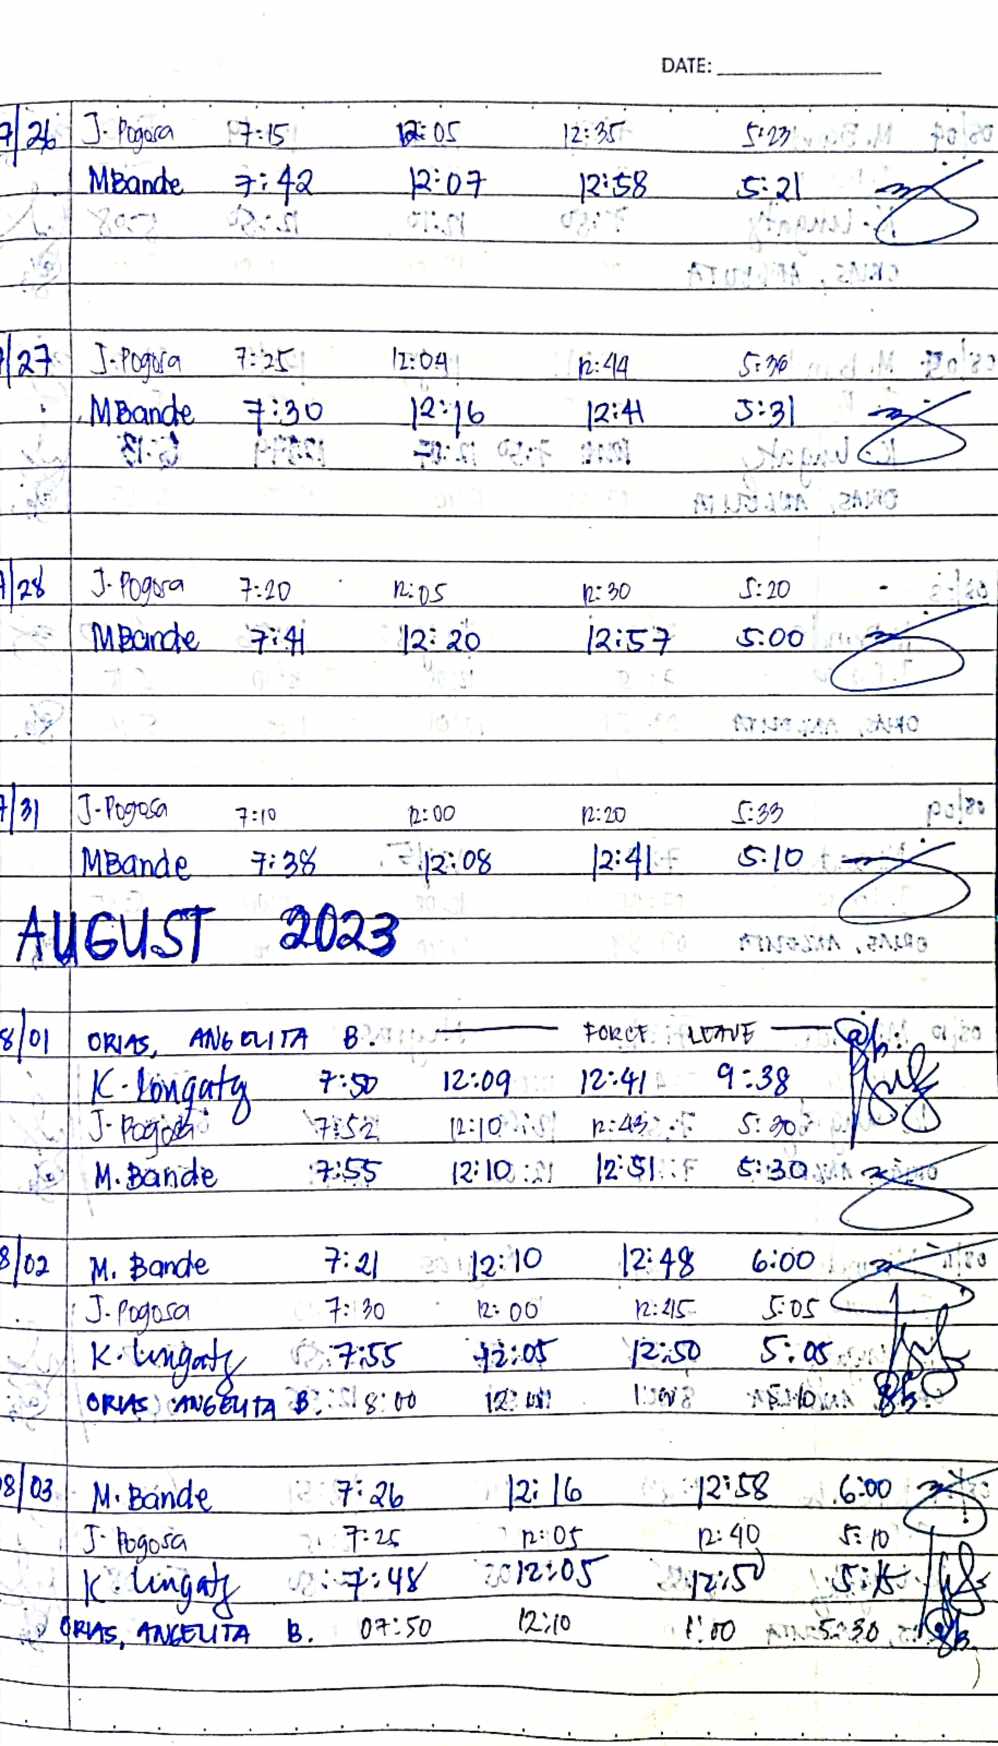 DATE:
7/26 J. Pogosa 7:15 12:05 12:35 5:23
MBande 7:42 12:07 12:58 5:21
7/27 J. Pogosa 7:25 12:04 12:44 5:30
MBande 7:30 12:16 12:41 5:31
7/28 J. Pogosa 7:20 12:05 12:30 5:20
MBande 7:41 12:20 12:57 5:00
7/31 J. Pogosa 7:10 12:00 12:20 5:33
MBande 7:38 12:08 12:41 5:10
AUGUST 2023
8/01 ORIAS, ANGELITA B. FORCE LEAVE
K. Longaty 7:50 12:09 12:41 9:38
J. Pogosa 7:52 12:10 12:43 5:30
M. Bande 7:55 12:10 12:51 5:30
8/02 M. Bande 7:21 12:10 12:48 6:00
J. Pogosa 7:30 12:00 12:45 5:05
K. Lingaty 7:55 12:05 12:50 5:05
ORIAS, ANGELITA B. 8:00
8/03 M. Bande 7:26 12:16 12:58 6:00
J. Pogosa 7:25 12:05 12:40 5:10
K. Lingaty 7:48 12:05 12:50 5:15
ORIAS, ANGELITA B. 07:50 12:10 1:00 5:30